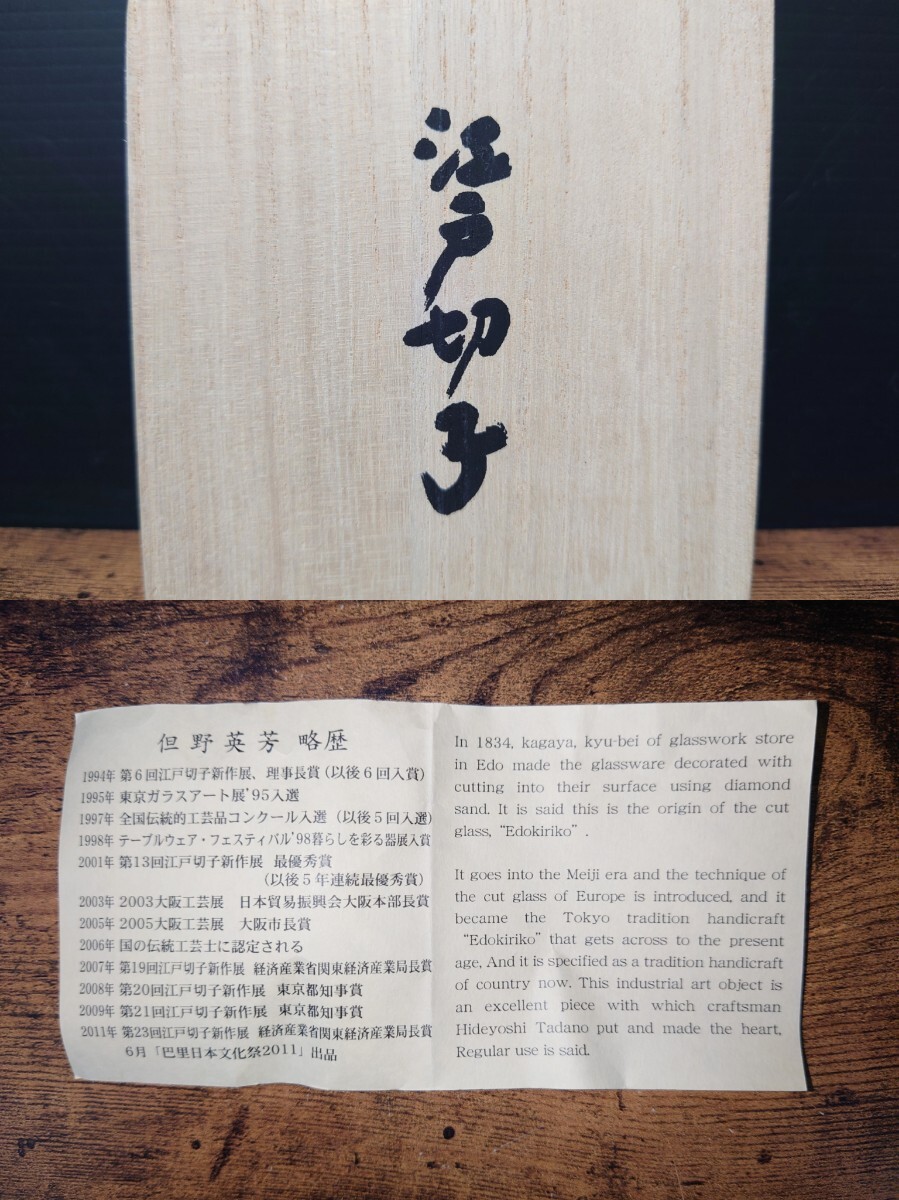 江戸切子
但野英芳 略歴
1994年 第6回江戸切子新作展、理事長賞(以後6回入賞)
1995年 東京ガラスアート展'95入選
1997年 全国伝統的工芸品コンクール入選(以後5回入選)
1998年 テーブルウェア・フェスティバル'98暮らしを彩る器展入賞
2001年 第13回江戸切子新作展 最優秀賞
(以後5年連続最優秀賞)
2003年 2003大阪工芸展 日本貿易振興会大阪本部長賞
2005年 2005大阪工芸展 大阪市長賞
2006年 国の伝統工芸士に認定される
2007年 第19回江戸切子新作展 経済産業省関東経済産業局長賞
2008年 第20回江戸切子新作展 東京都知事賞
2009年 第21回江戸切子新作展 東京都知事賞
2011年 第23回江戸切子新作展 経済産業省関東経済産業局長賞
6月「巴里日本文化祭2011」出品
In 1834, kagaya, kyu-bei of glasswork store
in Edo made the glassware decorated with
cutting into their surface using diamond
sand. It is said this is the origin of the cut
glass, "Edokiriko".
It goes into the Meiji era and the technique of
the cut glass of Europe is introduced, and it
became the Tokyo tradition handicraft
"Edokiriko" that gets across to the present
age, And it is specified as a tradition handicraft
of country now. This industrial art object is
an excellent piece with which craftsman
Hideyoshi Tadano put and made the heart,
Regular use is said.